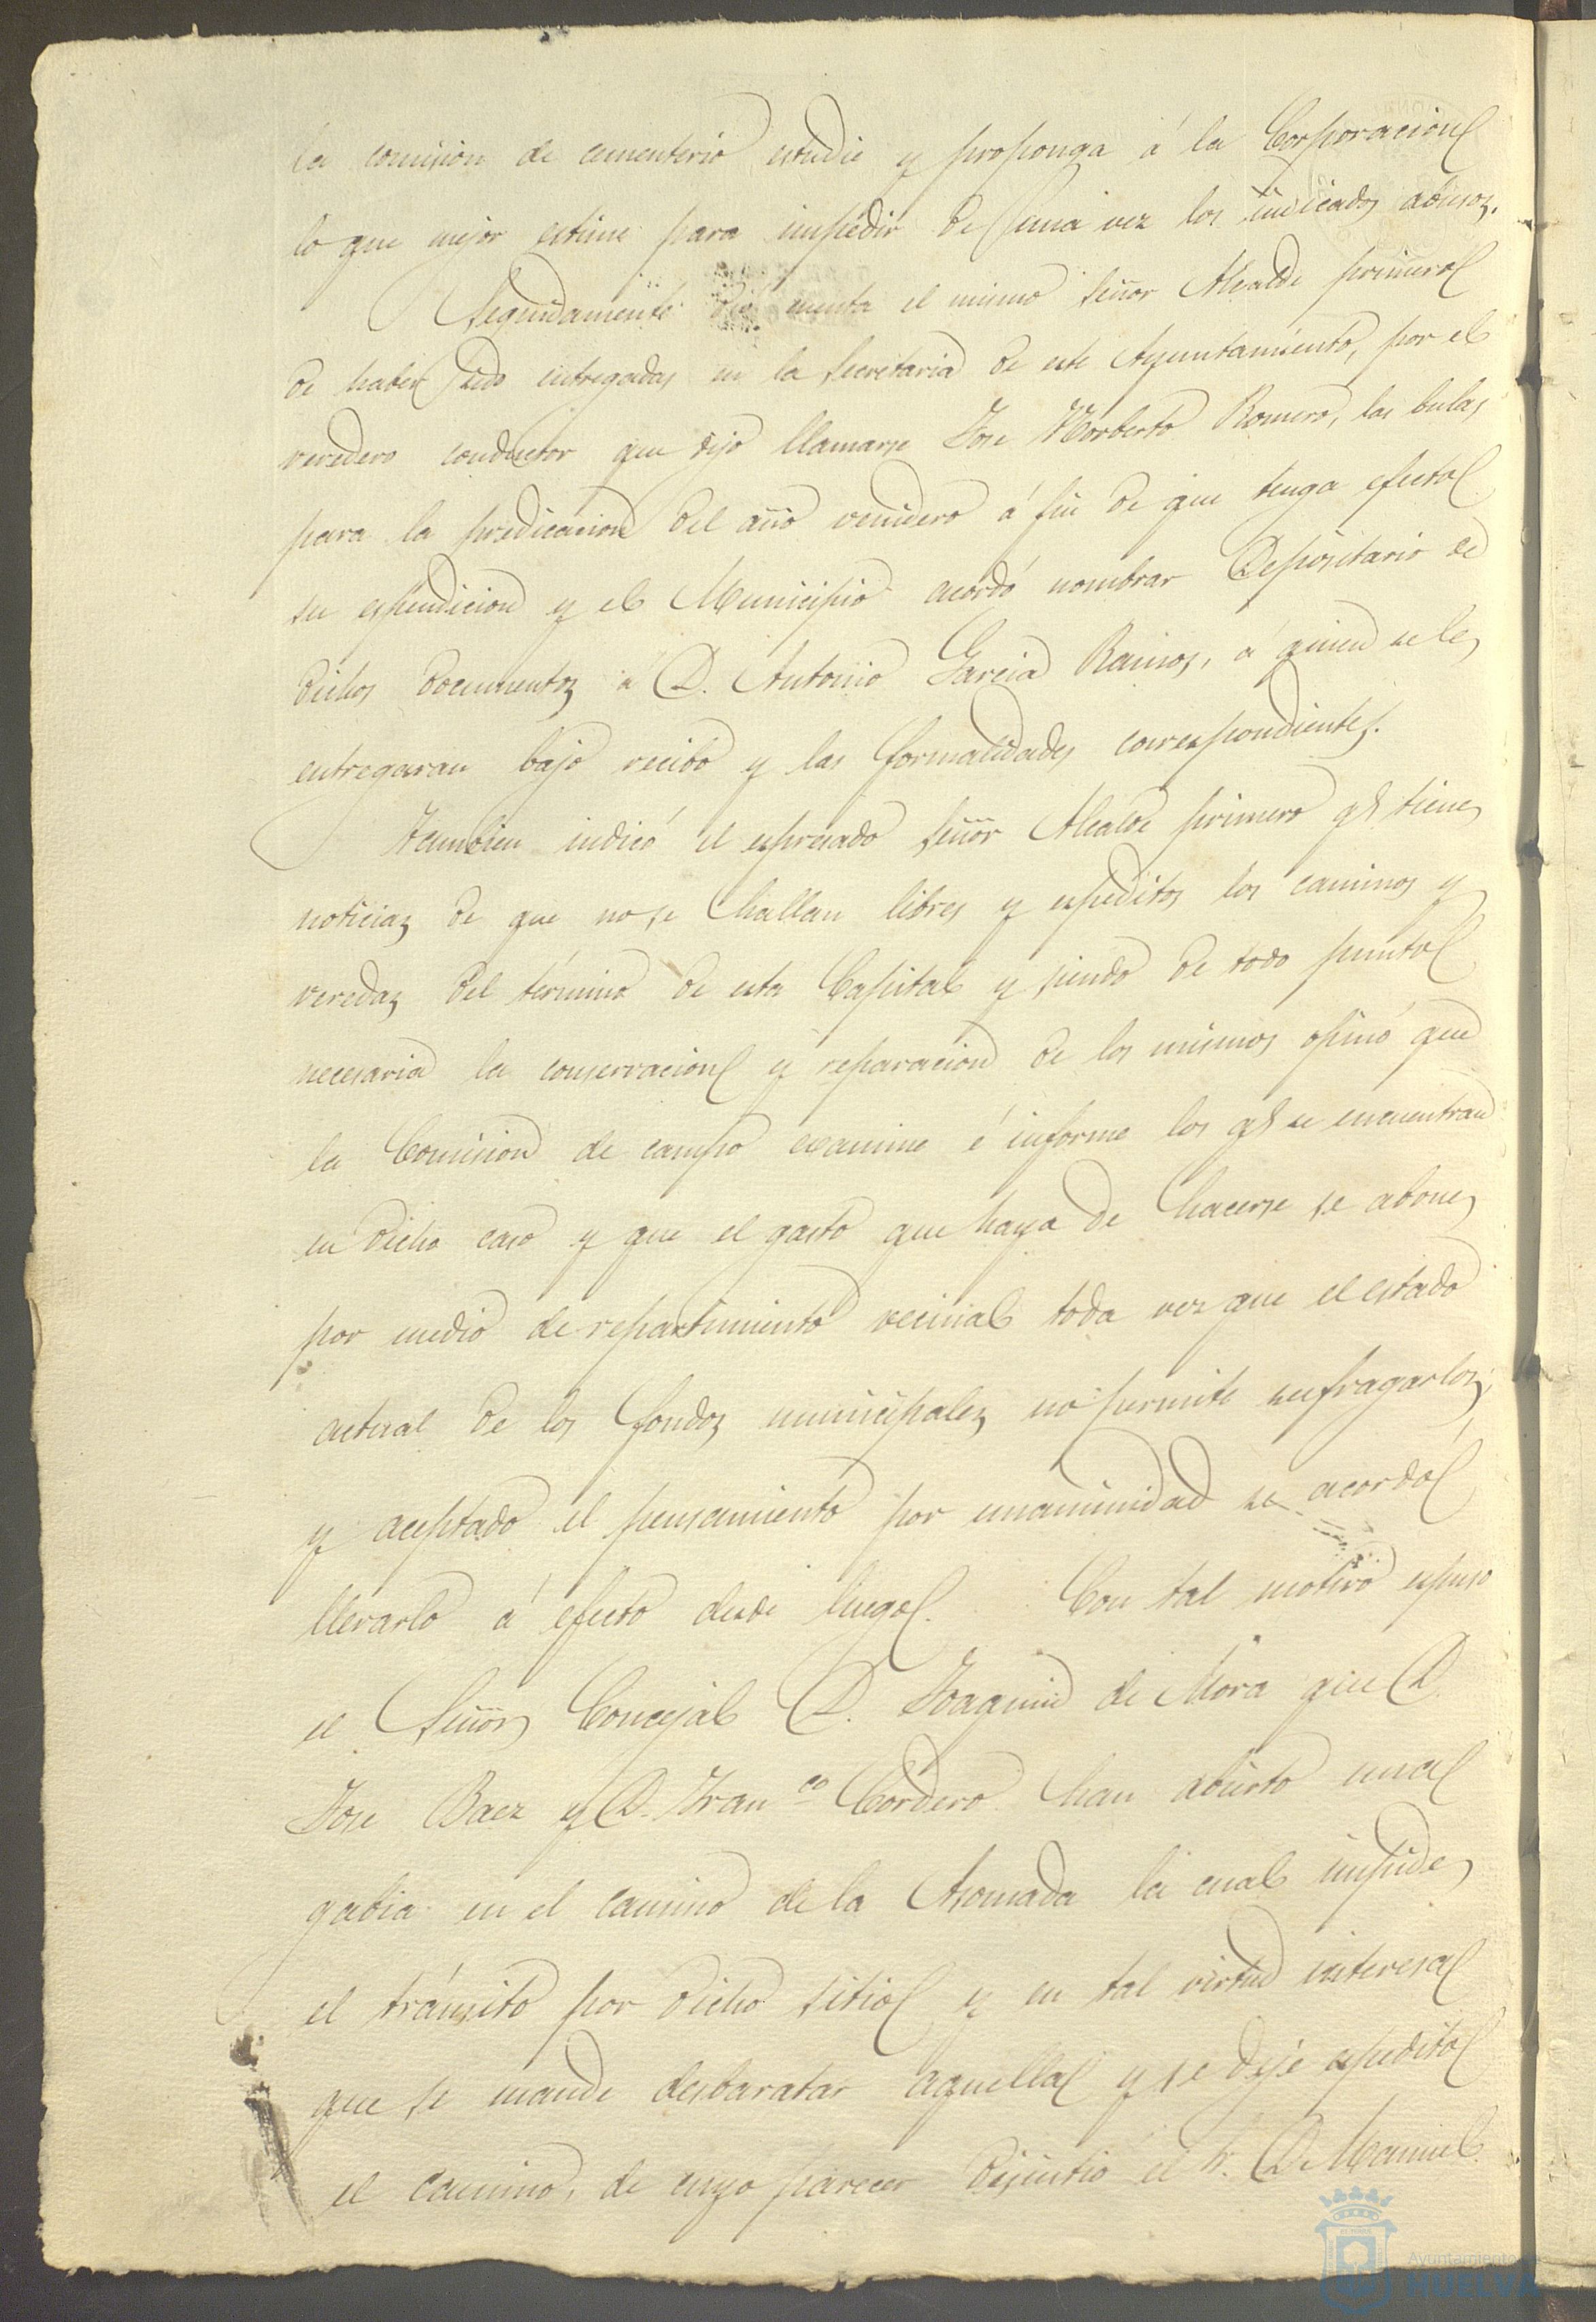 la comision de cementerio estudie y proponga á la Corporacion
lo que mejor estime para impedir de una vez los indicados abusos.
Seguidamente dió cuenta el mismo Señor Alcalde primero
de haber sido entregadas en la Secretaria de este Ayuntamiento, por el
veredero conductor que dijo llamarse Jose Norberto Romero, las bulas
para la predicacion del año venidero á fin de que tenga efecto
su espendicion y el Municipio acordó nombrar Depositario de
dichos documentos á D. Antonio Garcia Ramos, á quien se le
entregaran bajo recibo y las formalidades correspondientes.
Tambien indicó el espresado Señor Alcalde primero q.e tiene
noticias de que no se hallan libres y espeditos los caminos y
veredas del término de esta Capital y siendo de todo punto
necesaria la conservacion y reparacion de los mismos opinó que
la Comision de campo examine é informe los q.e se encuentran
en dicho caso y que el gasto que haya de hacerse se abone
por medio de repartimiento vecinal toda vez que el estado
actual de los fondos municipales no permite sufragarlos,
y aceptado el pensamiento por unanimidad se acordó
llevarlo á efecto desde luego. Con tal motivo espuso
el Señor Concejal D. Joaquin de Mora que D.
Jose Baez y D. Fran.co Cordero han abierto una
gabia en el camino de la Asomada la cual impide
el tránsito por dicho sitio y en tal virtud interesa
que se mande desbaratar aquella y se deje espedito
el camino, de cuyo parecer disintió el Sr. D. Manuel
Ayuntamiento
HUELVA